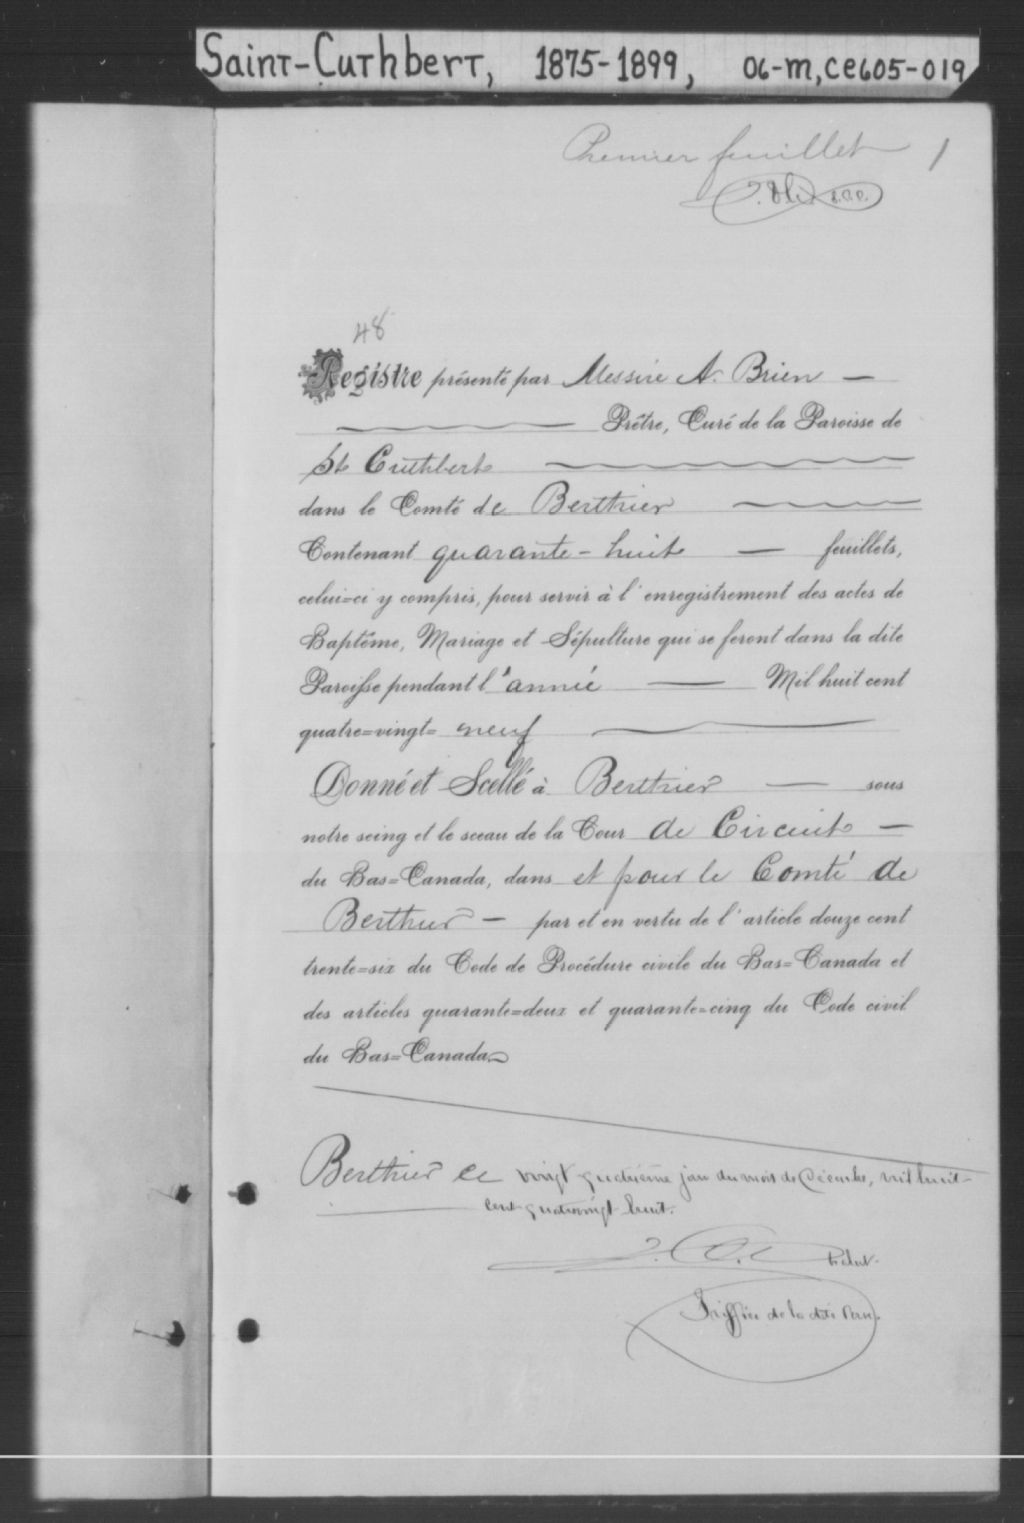 Saint-Cuthbert, 1875-1899, 06-m, ce605-019
Premier feuillet 1
48
Registre présenté par Messire A. Brien
Prêtre, Curé de la Paroisse de
St Cuthbert
dans le Comté de Berthier
Contenant quarante-huit feuillets,
celui=ci y compris, pour servir à l'enregistrement des actes de
Baptême, Mariage et Sépulture qui se feront dans la dite
Paroisse pendant l'année Mil huit cent
quatre=vingt= neuf
Donné et Scellé à Berthier sous
notre seing et le sceau de la Cour de Circuit
du Bas=Canada, dans et pour le Comté de
Berthier par et en vertu de l'article douze cent
trente=six du Code de Procédure civile du Bas=Canada et
des articles quarante=deux et quarante=cinq du Code civil
du Bas=Canada
Berthier ce vingt quatrième jour du mois de Décembre, mil huit
cent quatrevingt huit.
de la dite Cour.